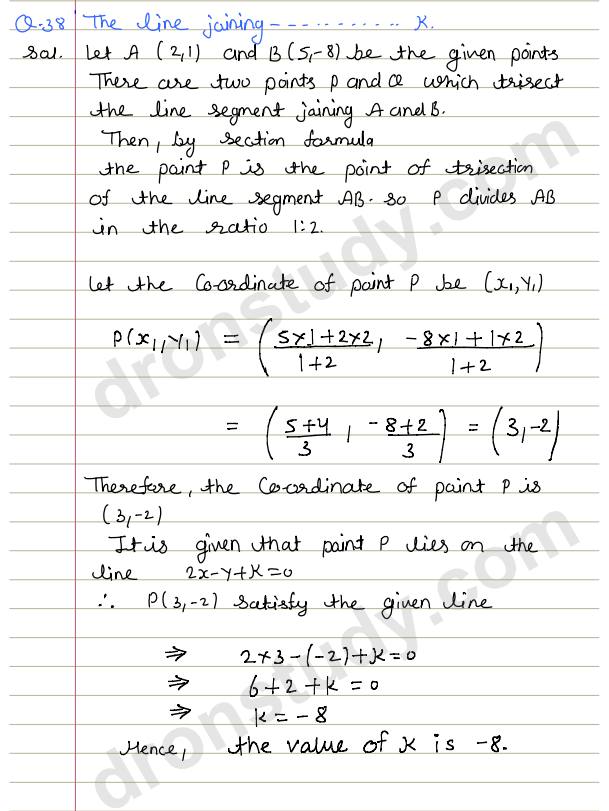 Q.38 The line joining - - - - - - - - - - K.
Sol. Let A (2,1) and B(5,-8) be the given points
There are two points P and Q which trisect
the line segment joining A and B.
Then, by section formula
the point P is the point of trisection
of the line segment AB. So P divides AB
in the ratio 1:2.
Let the Co-ordinate of point P be (x₁,Y₁)
P(x₁,Y₁) = (5×1+2×2/1+2, -8×1+1×2/1+2)
= (5+4/3, -8+2/3) = (3,-2)
Therefore, the Co-ordinate of point P is
(3,-2)
It is given that point P lies on the
line 2x-y+K=0
∴ P(3,-2) satisfy the given line
⇒ 2×3-(-2)+K=0
⇒ 6+2+K=0
⇒ K=-8
Hence, the value of K is -8.
dronstudy.com
dronstudy.com
dronstudy.com